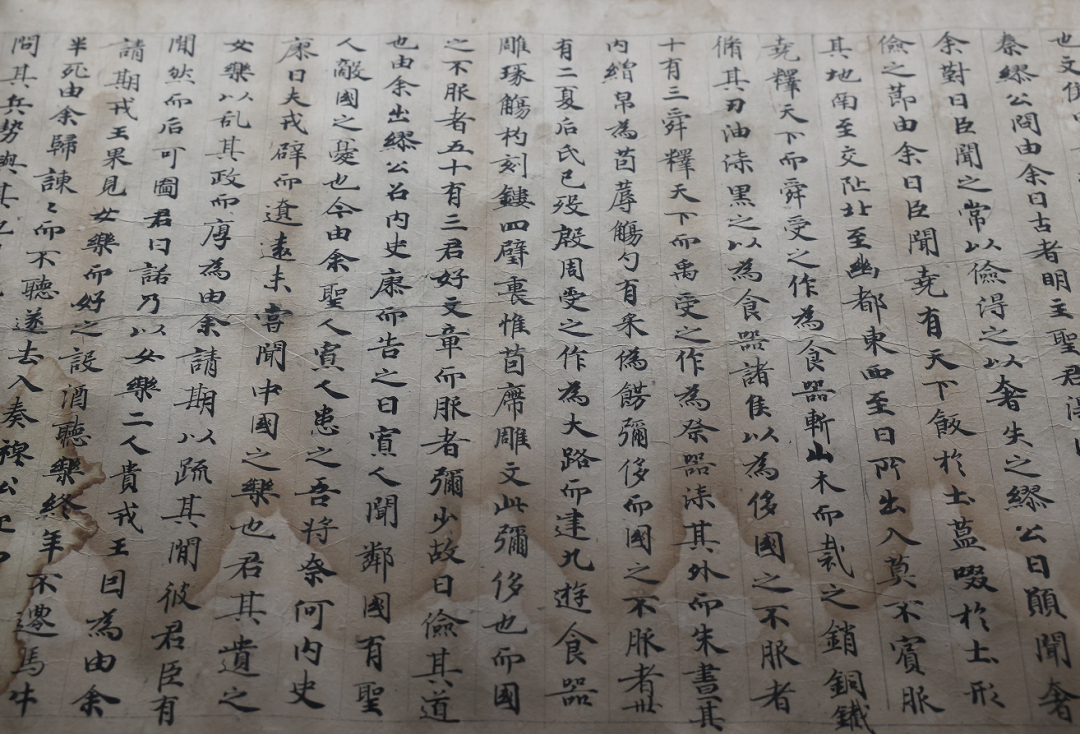 也文侯
秦繆公問由余曰古者明主聖君淂
余對曰臣聞之常以儉淂之以奢失之繆公曰願聞奢
儉之莭由余曰臣聞堯有天下飯於土簋啜於土形
其地南至交阯北至幽都東西至日所出入莫不賓服
堯釋天下而舜受之作為食器斬山木而裁之銷銅鐵
脩其刃油漆黑之以為食器諸侯以為侈國之不服者
十有三舜釋天下而禹受之作為祭器漆其外而朱畫其
内繒帛為茵蓐觴勺有采為餝彌侈而國之不服者卅
有二夏后氏已歿殷周受之作為大路而建九遊食器
雕琢觴杓刻鏤四壁裏惟茵席雕文此彌侈也而國
之不服者五十有三君好文章而服者彌少故曰儉其道
也由余出繆公召内史康而告之曰寡人聞鄰國有聖
人敵國之憂也今由余聖人寡人患之吾將奈何内史
康曰夫戎辟而遼遠未嘗聞中國之樂也君其遺之
女樂以乱其政而厚為由余請期以疏其閒彼君臣有
閒然而后可圖君曰諾乃以女樂二人貴戎王因為由余
請期戎王果見女樂而好之設酒聽樂終年不遷馬牛
半死由余歸諫〻而不聽遂去入秦穆公
問其兵势與其